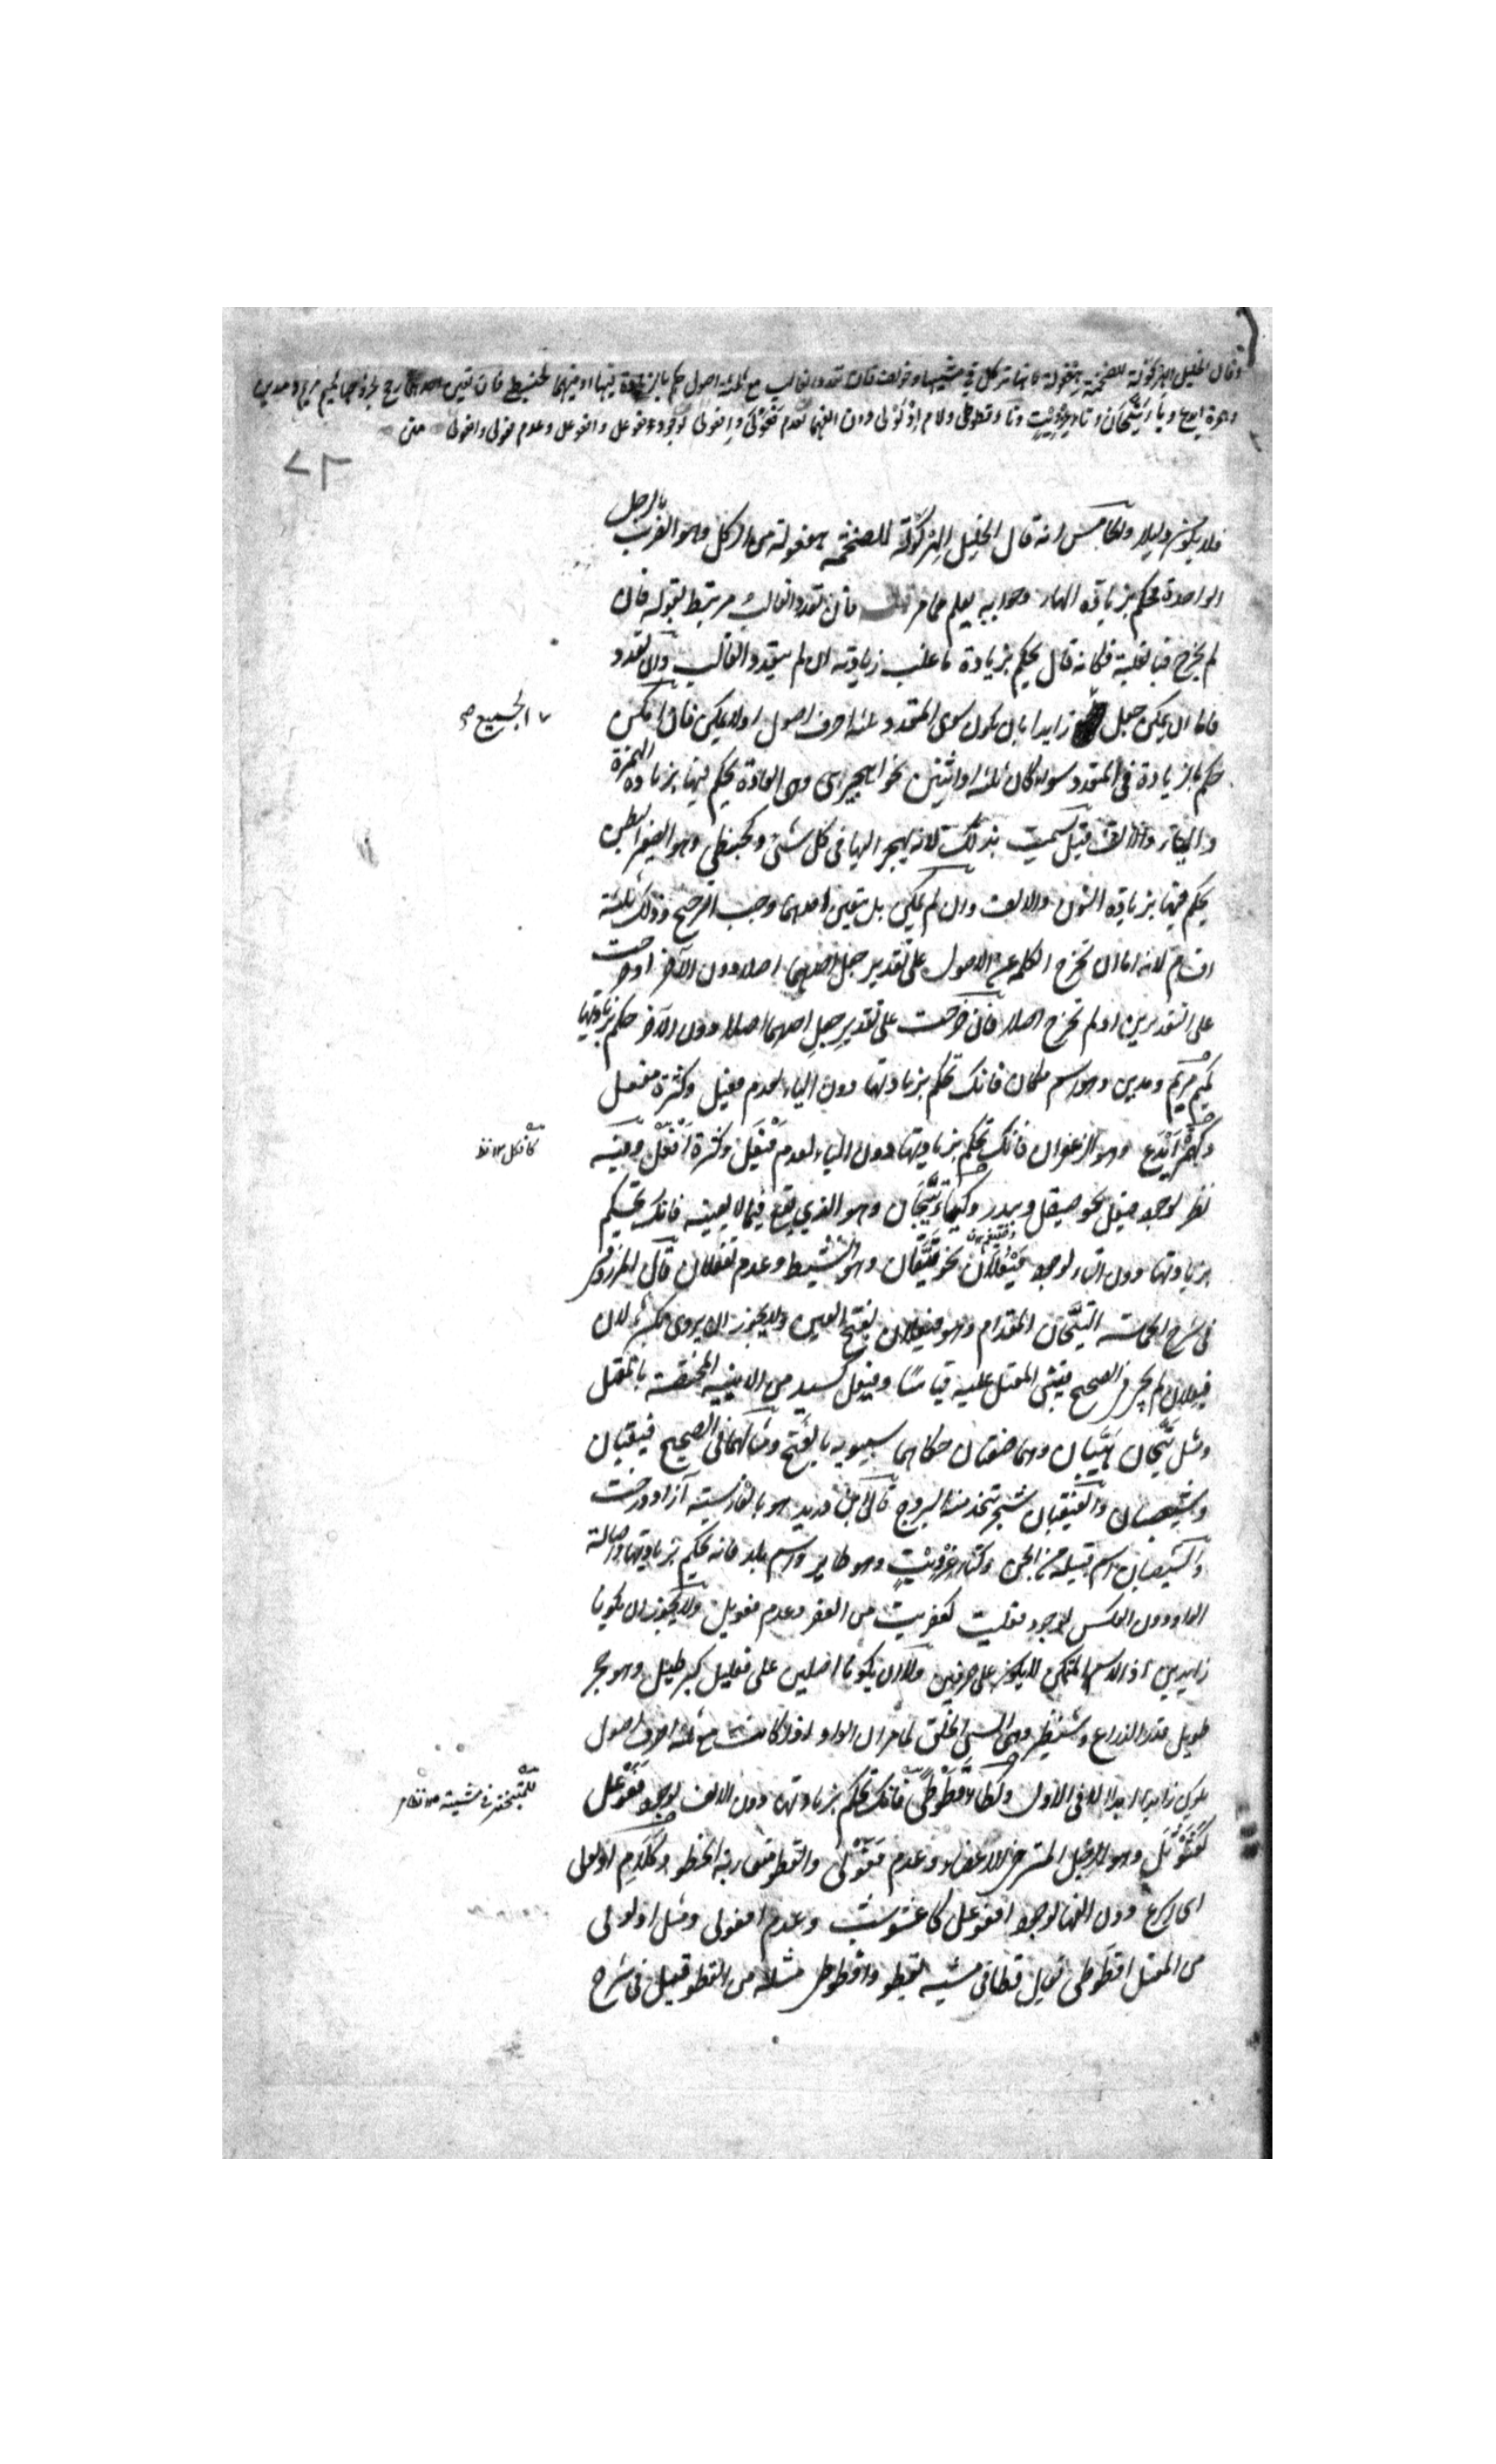 وقال الخليل الهركولة للضخمة هفعولة لانها تركل في مشيتها وخولفت فان تعدد الغالب مع ثلثة اصول حكم بالزيادة فيها او فيهما كحبنطى فان تعين احدهما رجح بخروجها كميم مريم ومدين
وهمزة ايدع وياء تيحان وتاء عزويت وطاء قطوطى ولام اذلولى دون الفهما لعدم فعولى وافعولى لوجود فعوعل وافعوعل وعدم فعولى وافعولى متن
٧٢
فلا يكون دليلا والخامس انه قال الخليل الهركولة للضخمة هفعولة من الركل وهو الضرب بالرجل
الواحدة فحكم بزيادة الهاء وجوابه يعلم مما مر فان تعدد الغالب مرتبط بقوله فان
لم يخرج فبالغلبة فكانه قال يحكم بزيادة ما غلب زيادته ان لم يتعدد الغالب وان تعدد
فاما ان يمكن جعل زايدا بان يكون سوى المتعدد ثلثة احرف اصول او لا يمكن فان امكن
الجميع صح
حكم بالزيادة في المتعدد سواء كان ثلثة او اثنين نحو اهجيرى وهي العادة يحكم فيها بزيادة الهمزة
والياء والالف قيل سميت بذلك لانه يهجر اليها في كل شئ وكحبنطى وهو الصغير البطن
يحكم فيها بزيادة النون والالف وان لم يمكن بل تعين احدهما وجب الترجيح وذلك ثلثة
اقسام لانه اما ان تخرج الكلمة عن الاصول على تقدير جعل احدهما اصلا دون الآخر او خرجت
على التقديرين او لم تخرج اصلا فان خرجت على تقدير جعل احدهما اصلا دون الآخر حكم بزيادتها
كميم مريم ومدين وهو اسم مكان فانك تحكم بزيادتها دون الياء لعدم فعيل وكثرة مفعل
وكهمزة ايدع وهو الزعفران فانك تحكم بزيادتها دون الياء لعدم فيعل وكثرة افعل وفيه
كافكل
نظر لوجود فيعل نحو صيقل وبيدر وكياء تيحان وهو الذي يقع فيما لا يعنيه فانك تحكم
بزيادتها دون التاء لوجود فيعلان نحو تيقان وهو النشيط وعدم تفعلان قال المرزوقي
في شرح الحماسة التيحان المقدام وهو فيعلان بفتح العين ولا يجوز ان يروى بكسرها لان
فيعلان لم يجئ في الصحيح فيبنى المعتل عليه قياسا وفيعل كسيد من الابنية المختصة بالمعتل
ومثل تيحان هيبان وهما صفتان حكاهما سيبويه بالفتح ومثالهما في الصحيح قيقبان
وشيصبان والقيقبان شجر تتخذ منه السروج قال ابن دريد هو بالفارسية آزاد درخت
والشيصبان اسم قبيلة من الجن وكتاء عزويت وهو طاير واسم بلد فانه يحكم بزيادتها واصالة
الواو دون العكس لوجود فعليت كعفريت من العفر وعدم فعويل ولا يجوز ان يكونا
زايدين اذ الاسم المتمكن لا يكون على حرفين ولا ان يكونا اصليين على فعليل كبرطيل وهو حجر
طويل قدر الذراع وشنظير وهو السيئ الخلق لما مر ان الواو اذا كانت مع ثلثة احرف اصول
يكون زايدا ابدا الا في الاول وكطاء قطوطى فانك تحكم بزيادتها دون الالف لوجود فعوعل
للمتبختر في مشيته
كعثوثل وهو الرجل المسترخي الاعضاء وعدم فعولى والقطو مقاربة الخطو وكلام اذلولى
اي اسرع دون الفها لوجود افعوعل كاعشوشب وعدم افعولى ومثل اذلولى
من المعتل اقطوطى يقال قطا في مشيه يقطو واقطوطى مثله من القطو قيل في شرح